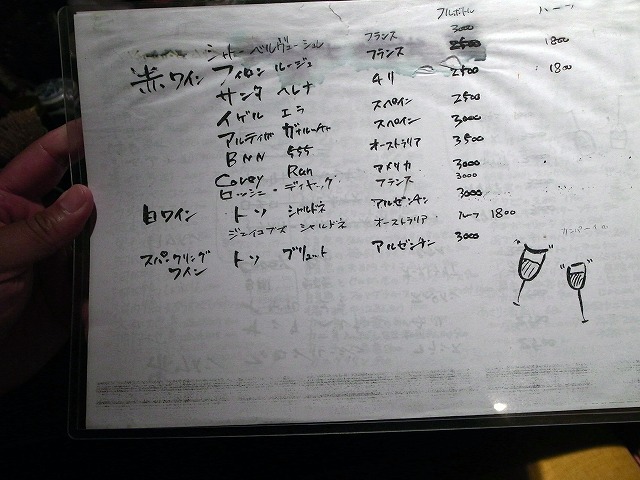 フルボトル ハーフ
シャトー・ベルヴュー・シュレ フランス 3000
赤ワイン フィロン ルージュ フランス 2500 1800
サンタ ヘレナ チリ 2500 1800
イゲル エラ スペイン 2500
アルティガ スペイン 3000
BNN 555 オーストラリア 3500
Covey Run アメリカ 3000
ロッシュ・ フランス 3000
白ワイン トソ シャルドネ アルゼンチン 3000
ジェイコブス シャルドネ オーストラリア ハーフ 1800
スパークリングワイン トソ ブリュット アルゼンチン 3000
カンパーイ